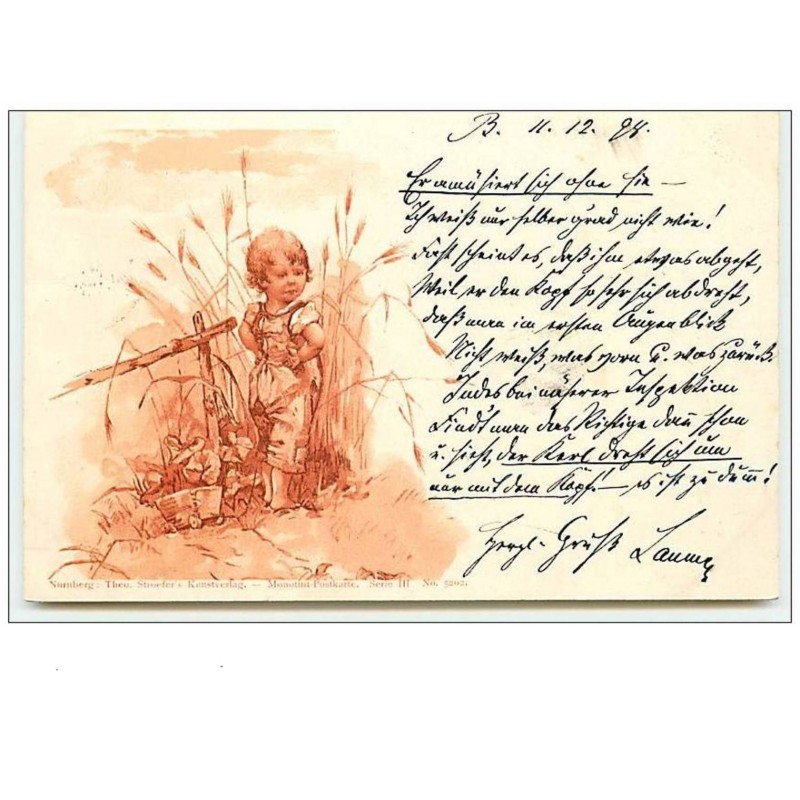 B. 11. 12. 98.
Er amüsiert sich ohne sie —
Ich weiß nur selber grad, nicht wie!
Fast scheint es, daß ihm etwas abgeht,
Weil er den Kopf so sehr sich abdreht,
daß man im ersten Augenblick
Nicht weiß, was vorn u. was zurück.
Indes bei näherer Inspektion
Findt man das Richtige dann schon
u. sieht, der Kerl dreht sich um
nur mit dem Kopf! — es ist zu dum̄!
Herzl. Gruß
Nürnberg: Theo. Stroefer's Kunstverlag. — Monotint-Postkarte. Serie III No. 5202.